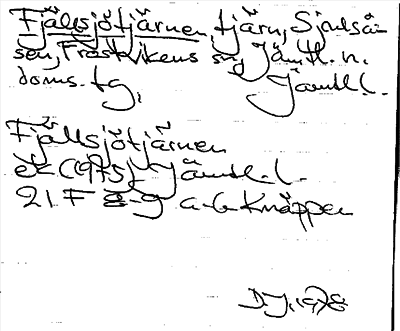 Fjällsjötjärnen, tjärn, Sjoulså-
sen, Frostvikens sn, Jämtl. n.
doms. tg, Jämtl. l.
Fjällsjötjärnen
ek (1975) Jämtl. l.
21 F g a-b Knäppen
D.J. 1978